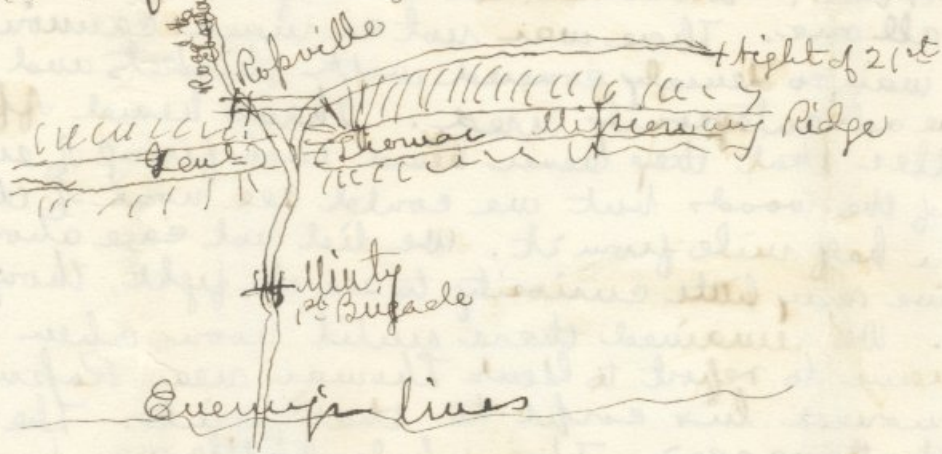 Road to
Rossville
Fight of 21st
Missionary Ridge
Thomas
Minty
1st Brigade
Enemy's lines